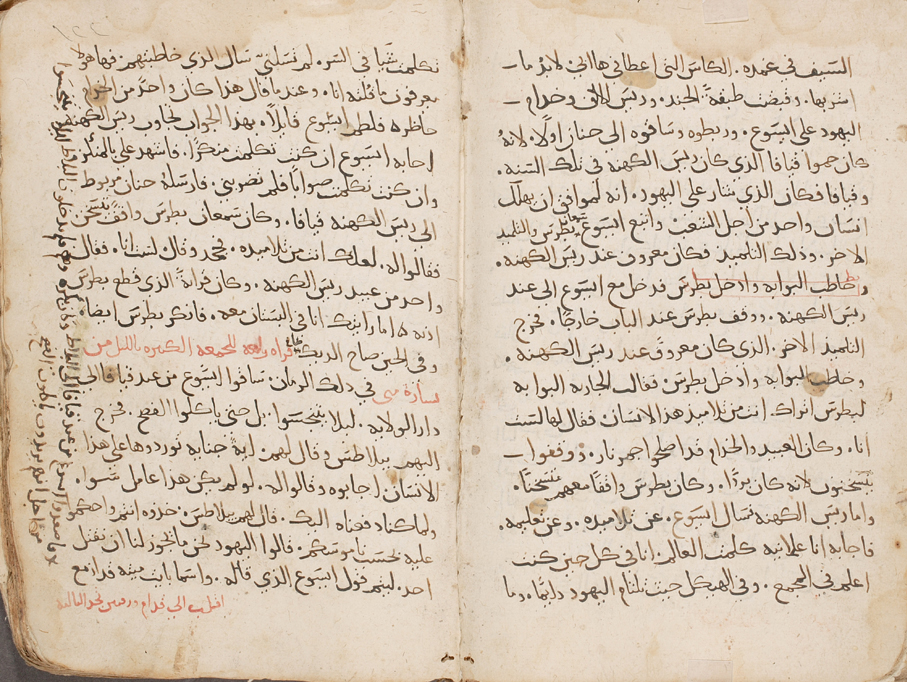 السيف في عمده. الكاس التي اعطاني هاابي لابد ما
اشربها. وقبضت طبقة الجند. وريس الالف وخدام
اليهود علي ايسوع. وربطوه وساقوه الي حنان اولا. لانه
كان حموا قيافا الذي كان ريس الكهنه في تلك السنه.
وقيافا فكان الذي شار علي اليهود. انه لموافق ان يهلك
انسان واحد من اجل الشعب واتبع ايسوع سمعان بطرس والتلميد
الاخر. وذلك التلميذ فكان معروف عند ريس الكهنه.
وخاطب البوابه وادخل بطرس فدخل مع ايسوع الي عند
ريس الكهنه. ووقف بطرس عند الباب خارجا. فخرج
التلميد الاخر. الذي كان معروف عند ريس الكهنه.
وخاطب البوابه وادخل بطرس. فقال الجاريه البوابه
لبطرس اتراك انت من تلاميد هدا الانسان فقال لها لست
انا. وكان العبيد والخدام قد اصلحوا جمر نار. ووقفوا
يتسخنون لانه كان بردا. وكان بطرس واقفا معهم متسخنا.
واما ريس الكهنه فسال ايسوع. عن تلاميده. وعن تعليمه.
فاجابه انا علانيه كلمت العالم. انا في كل حين كنت
اعلم في المجمع. وفي الهيكل حيث تلتام اليهود دايما. وما
تكلمت شيا في السر. لم تسلني سال الذي خاطبتهم. فها هولا
يعرفون ما قلته انا. وعند ما قال هذا كان واحد من الخدام
حاظره فلطم ايسوع قايلا. بهذا الجواب تجاوب ريس الكهنه
اجابه ايسوع ان كنت تكلمت منكرا. فاشهد علي بالمنكر
وان كنت تكلمت صوابا فلم تضربني. فارسله حنان مربوط
الي ريس الكهنه قيافا. وكان سمعان بطرس واقف يتسخن
فقالوا له. لعلك انت من تلاميده. فجحد وقال لست انا. فقال
واحد من عبيد ريس الكهنه. وكان قرابة الذي قطع بطرس
اذنه اما رايتك انا في البستان معه. فانكر بطرس ايضا
وفي الحين صاح الديك قراه رابعه للجمعه الكبيره بالليل من
بشارة متى في ذلك الزمان. ساقوا ايسوع من عند قيافا الي
دار الولايه. ليلا يتنجسوا بل حتي ياكلوا الفصح. فخرج
اليهم بيلاطس وقال لهم. اية جنايه توردوها علي هذا
الانسان اجابوه وقالوا له. لو لم يكن هذا عامل سوا.
ولما كنا دفعناه اليك. قال لهم بيلاطس. خذوه انتم واحكموا
عليه بحسب ناموسكم. قالوا اليهود نحن ما يجوز لنا ان نقتل
احد. ليتم قول ايسوع الذي قاله. واشما بايت ميته قد ازمع
اقلب الي قدام ورقتين تجد التاليه